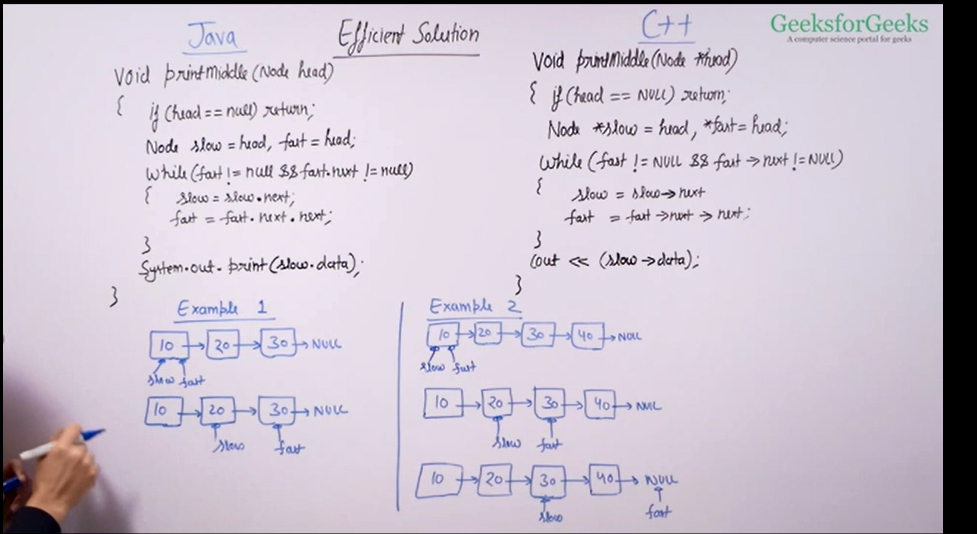 Java
Efficient Solution
C++
GeeksforGeeks
A computer science portal for geeks
Void printMiddle (Node head)
{ if (head == null) return;
Node slow = head, fast = head;
While (fast != null && fast.next != null)
{ slow = slow.next;
fast = fast.next.next;
}
System.out.print(slow.data);
}
Void printMiddle (Node *head)
{ if (head == NULL) return;
Node *slow = head, *fast = head;
While (fast != NULL && fast → next != NULL)
{ slow = slow → next
fast = fast → next → next;
}
Cout << (slow → data);
}
Example 1
10 → 20 → 30 → NULL
slow fast
10 → 20 → 30 → NULL
slow fast
Example 2
10 → 20 → 30 → 40 → NULL
slow fast
10 → 20 → 30 → 40 → NULL
slow fast
10 → 20 → 30 → 40 → NULL
slow fast